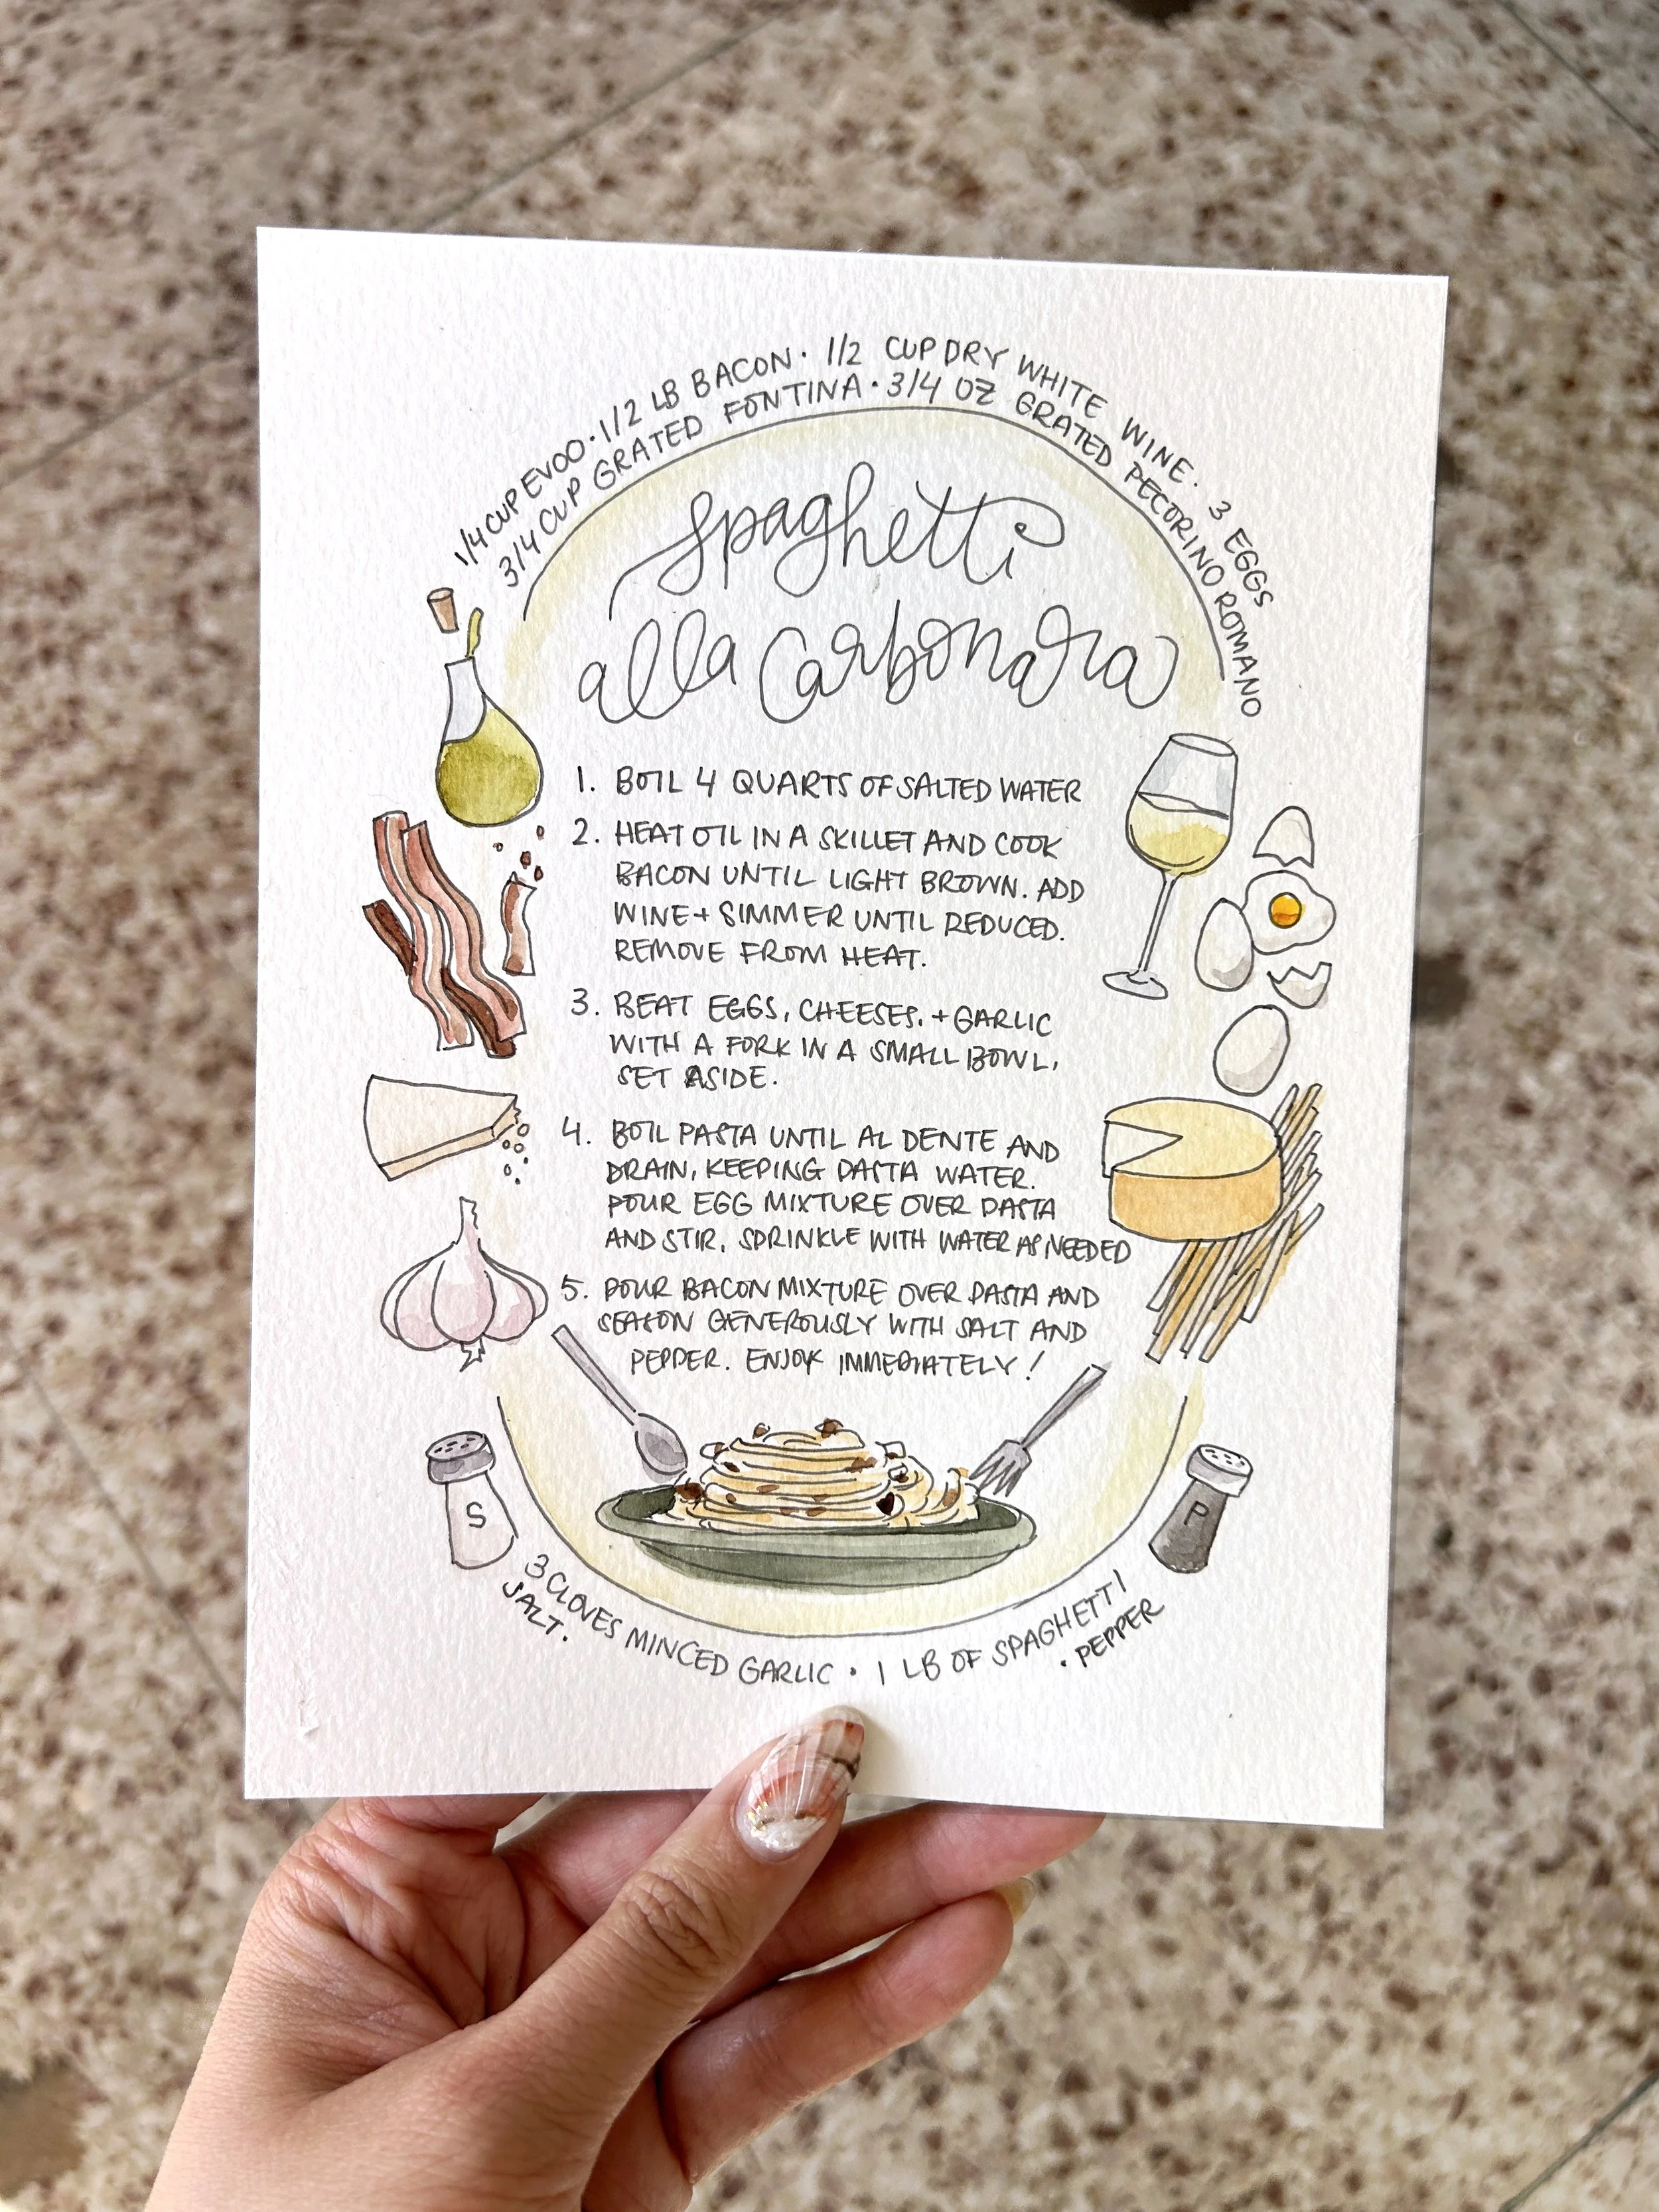 1/4 CUP EVOO · 1/2 LB BACON · 1/2 CUP DRY WHITE WINE · 3 EGGS
3/4 CUP GRATED FONTINA · 3/4 OZ GRATED PECORINO ROMANO
Spaghetti
alla Carbonara
1. BOIL 4 QUARTS OF SALTED WATER
2. HEAT OIL IN A SKILLET AND COOK
BACON UNTIL LIGHT BROWN. ADD
WINE + SIMMER UNTIL REDUCED.
REMOVE FROM HEAT.
3. BEAT EGGS, CHEESES, + GARLIC
WITH A FORK IN A SMALL BOWL,
SET ASIDE.
4. BOIL PASTA UNTIL AL DENTE AND
DRAIN, KEEPING PASTA WATER.
POUR EGG MIXTURE OVER PASTA
AND STIR, SPRINKLE WITH WATER AS NEEDED
5. POUR BACON MIXTURE OVER PASTA AND
SEASON GENEROUSLY WITH SALT AND
PEPPER. ENJOY IMMEDIATELY!
S
P
3 CLOVES MINCED GARLIC · 1 LB OF SPAGHETTI
SALT · · PEPPER